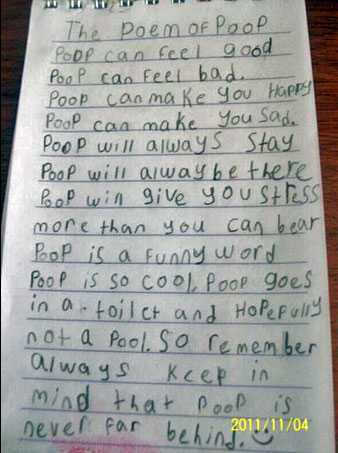 The Poem of Poop
Poop can feel good
Poop can feel bad.
Poop can make you HAPPY
Poop can make you Sad.
Poop will always stay
Poop will alway be there
Poop will give you stress
more than you can bear
Poop is a funny word
Poop is so cool. Poop goes
in a toilet and Hopefully
not a Pool. So remember
always keep in
mind that poop is
never far behind.
2011/11/04